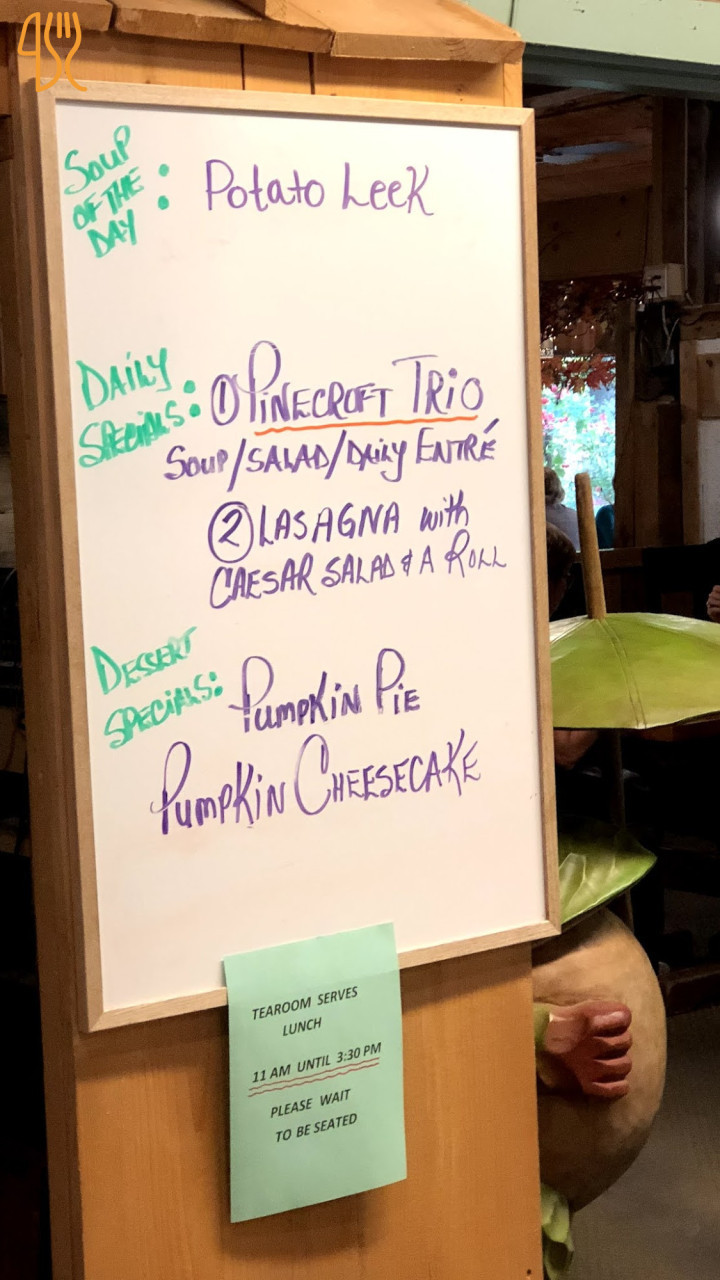 Soup
OF THE
DAY :
Potato Leek
DAiLY
SPECiALS :
① PINECROFT TRiO
Soup/SALAD/DAiLy ENTRÉ
② LASAGNA with
CAESAR SALAD & A ROLL
DESSERT
SPECiALS:
PumpKiN PiE
PumpKiN CHEESECAKE
TEAROOM SERVES
LUNCH
11 AM UNTIL 3:30 PM
PLEASE WAIT
TO BE SEATED